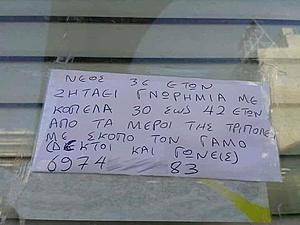 ΝΕΟΣ 36 ΕΤΩΝ
ΖΗΤΑΕΙ ΓΝΩΡΗΜΙΑ ΜΕ
ΚΟΠΕΛΑ 30 ΕωΣ 42 ΕΤΩΝ
ΑΠΟ ΤΑ ΜΕΡΟΙ ΤΗΣ ΤΡΙΠΟΛΕ
ΜΕ ΣΚΟΠΟ ΤΟΝ ΓΑΜΟ
(ΔΕΚΤΟΙ ΚΑΙ ΓΩΝΕΙΣ)
6974 83